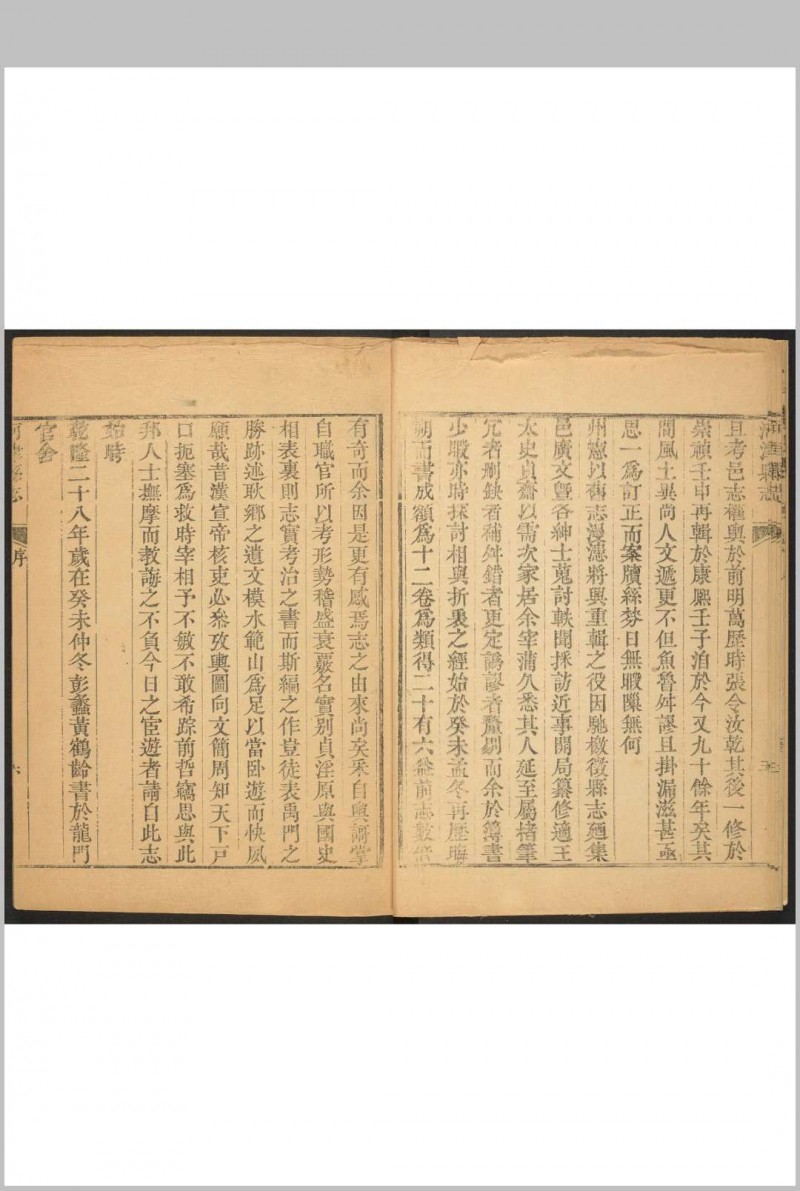 河津縣志
且考邑志權輿於前明萬歷時張令汝乾其後一修於
崇禎壬申再輯於康熙壬子洎於今又九十餘年矣其
間風土異尚人文遞更不但魚魯舛謬且掛漏滋甚亟
思一為訂正而案牘絲棼日無暇隙無何
州憲以舊志漫漶將興重輯之役因馳檄徵縣志廼集
邑廣文暨各紳士蒐討軼聞採訪近事開局纂修適王
太史貞齋以需次家居余宰蒲久悉其人延至屬搘筆
冗者删缺者補舛錯者更定譌謬者釐剔而余於簿書
少暇亦時探討相與折衷之經始於癸未孟冬再歷晦
朔而書成額為十二卷為類得二十有六益前志數倍
有奇而余因是更有感焉志之由來尚矣釆自輿謌掌
自職官所以考形勢稽盛衰覈名實别貞淫原與國史
相表裏則志實考治之書而斯編之作豈徒表禹門之
勝跡述耿鄉之遺文模水範山為足以當卧遊而快夙
願哉昔漢宣帝核吏必叅攷輿圖向文簡周知天下戸
口扼塞為救時宰相予不敏不敢希踪前哲竊思與此
邦人士撫摩而教誨之不負今日之宦遊者請自此志
始時
乾隆二十八年歲在癸未仲冬彭蠡黄鶴齡書於龍門
官舍
序
六